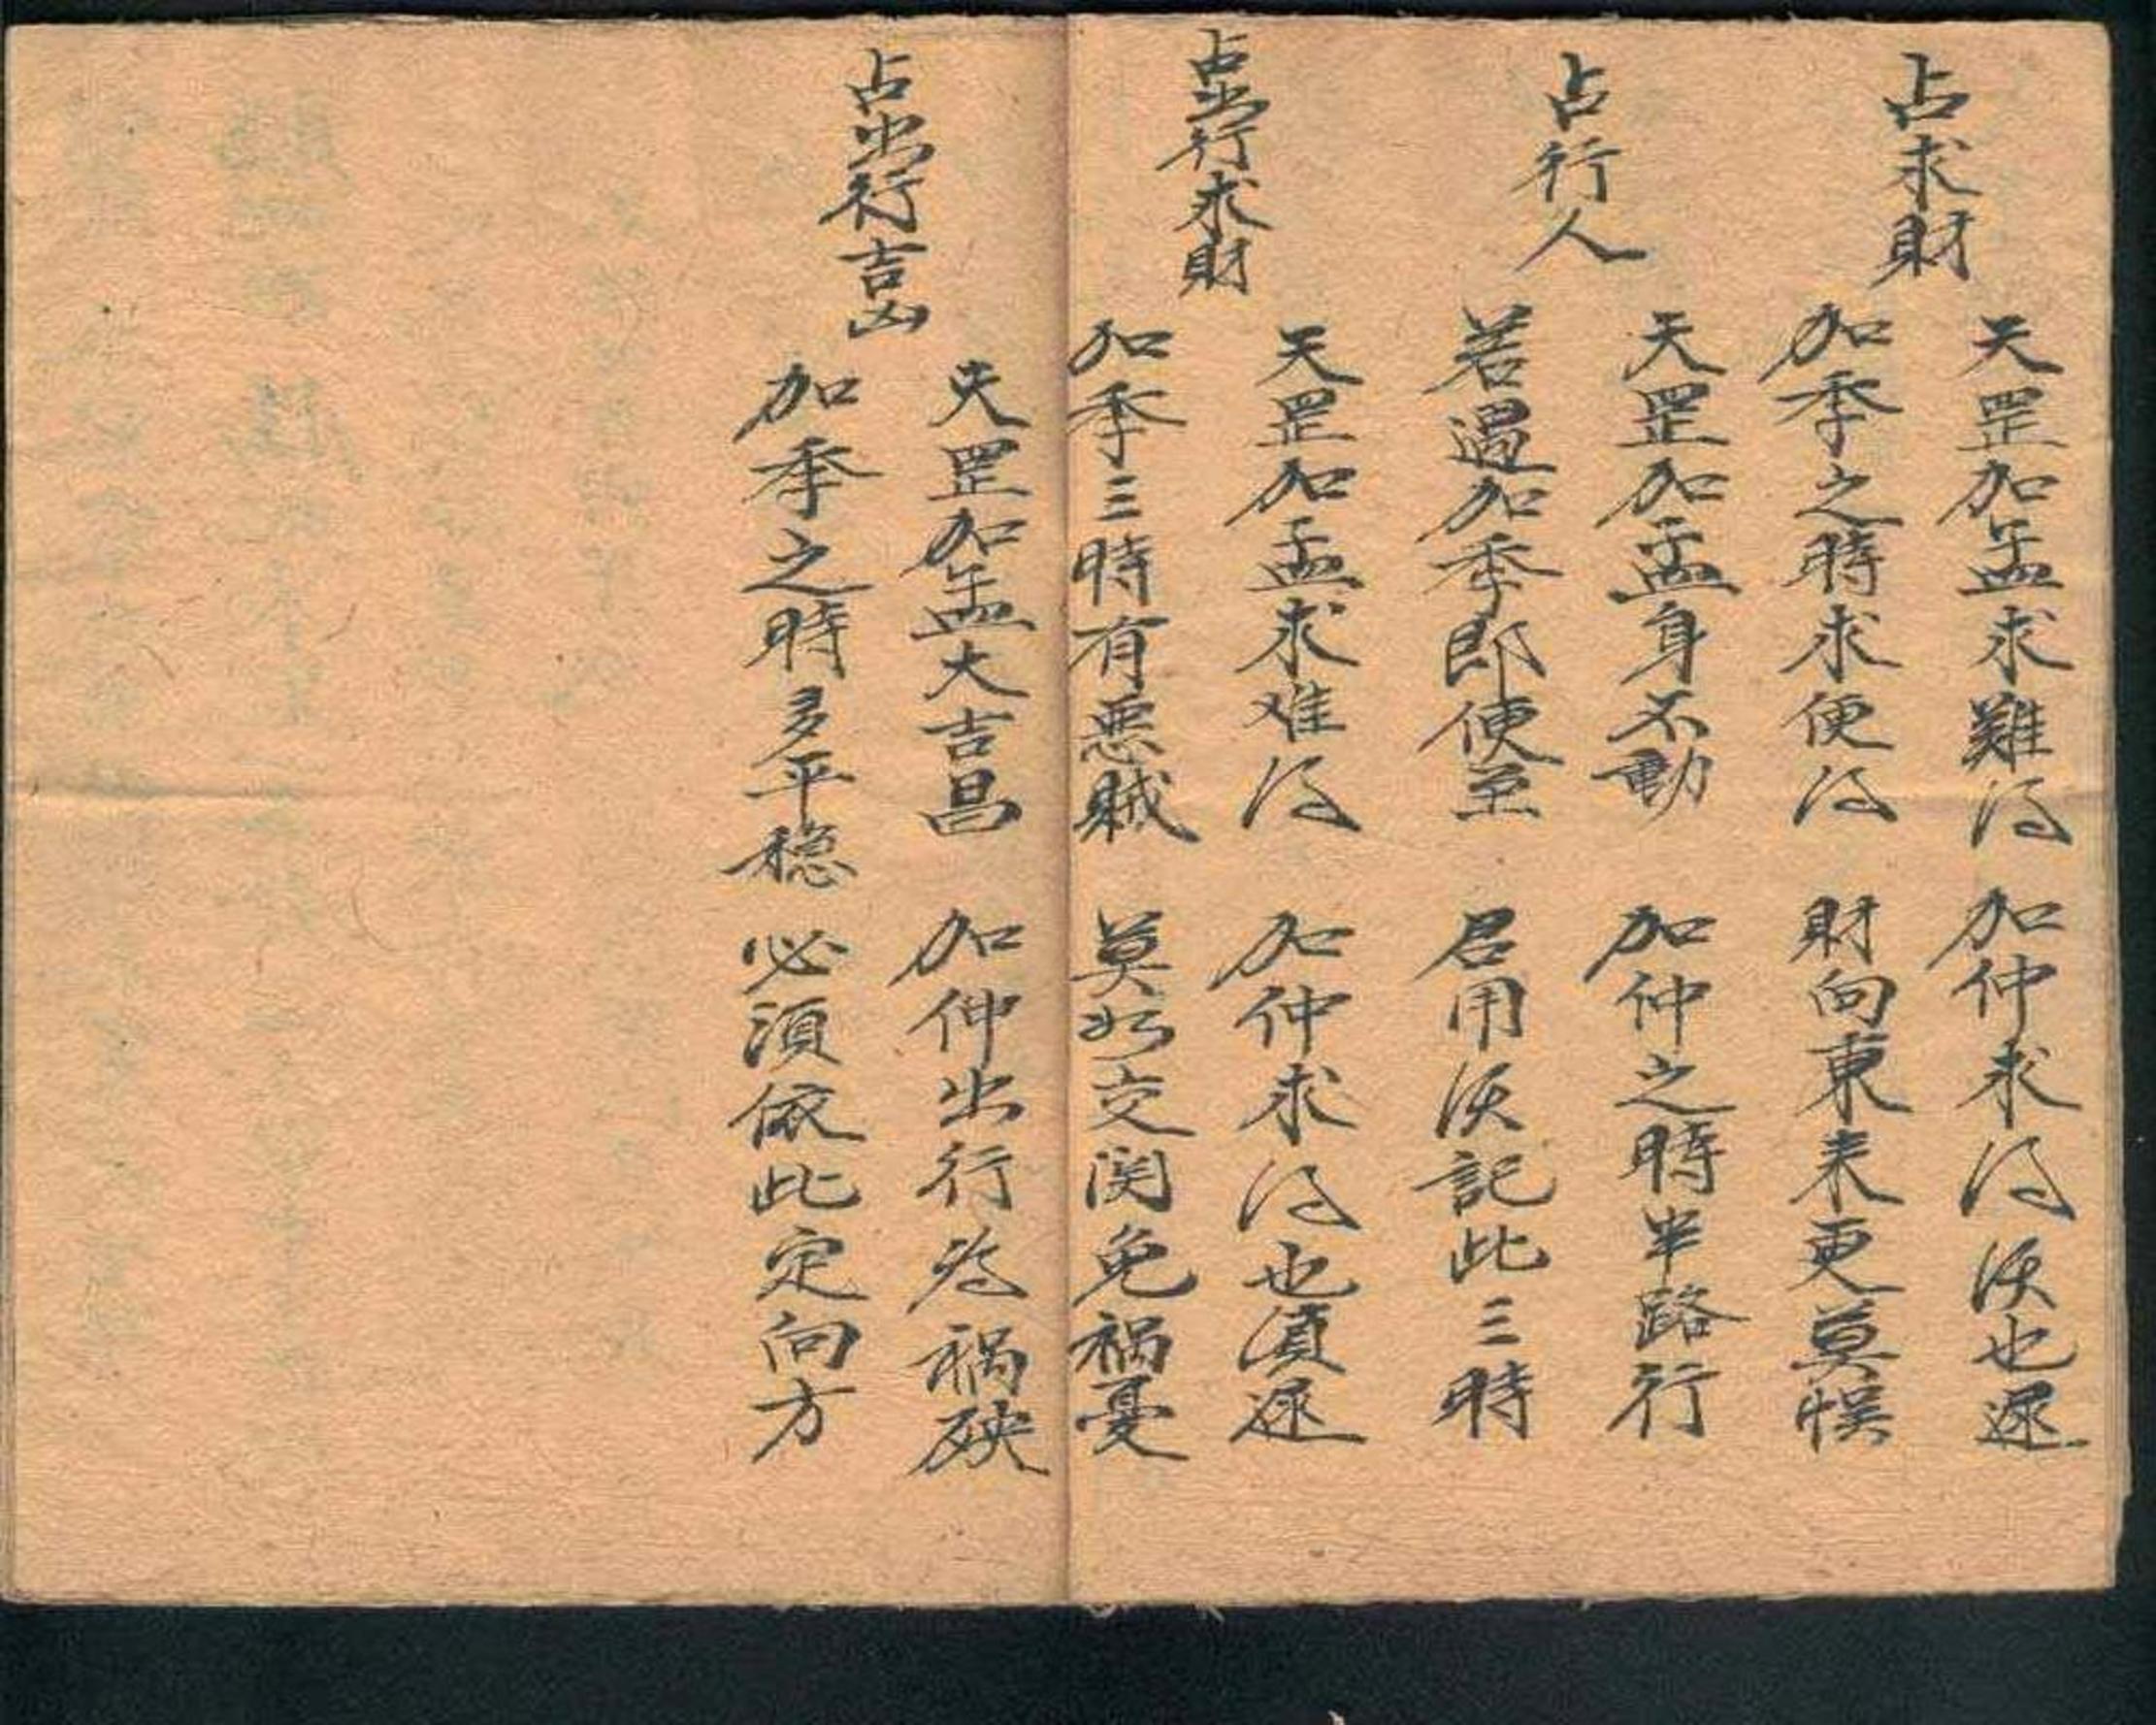 占求財
天罡加孟求難得 加仲求得返也遲
加季之時求便得 財向東来更莫悮
占行人
天罡加孟身不動 加仲之時半路行
若遇加季即便至 君用返記此三時
占出行求財
天罡加孟求难得 加仲求得也須遲
加季三時有悪賊 莫於交関免禍憂
占出行吉凶
天罡加孟大吉昌 加仲出行為禍殃
加季之時多平穏 必須依此定向方